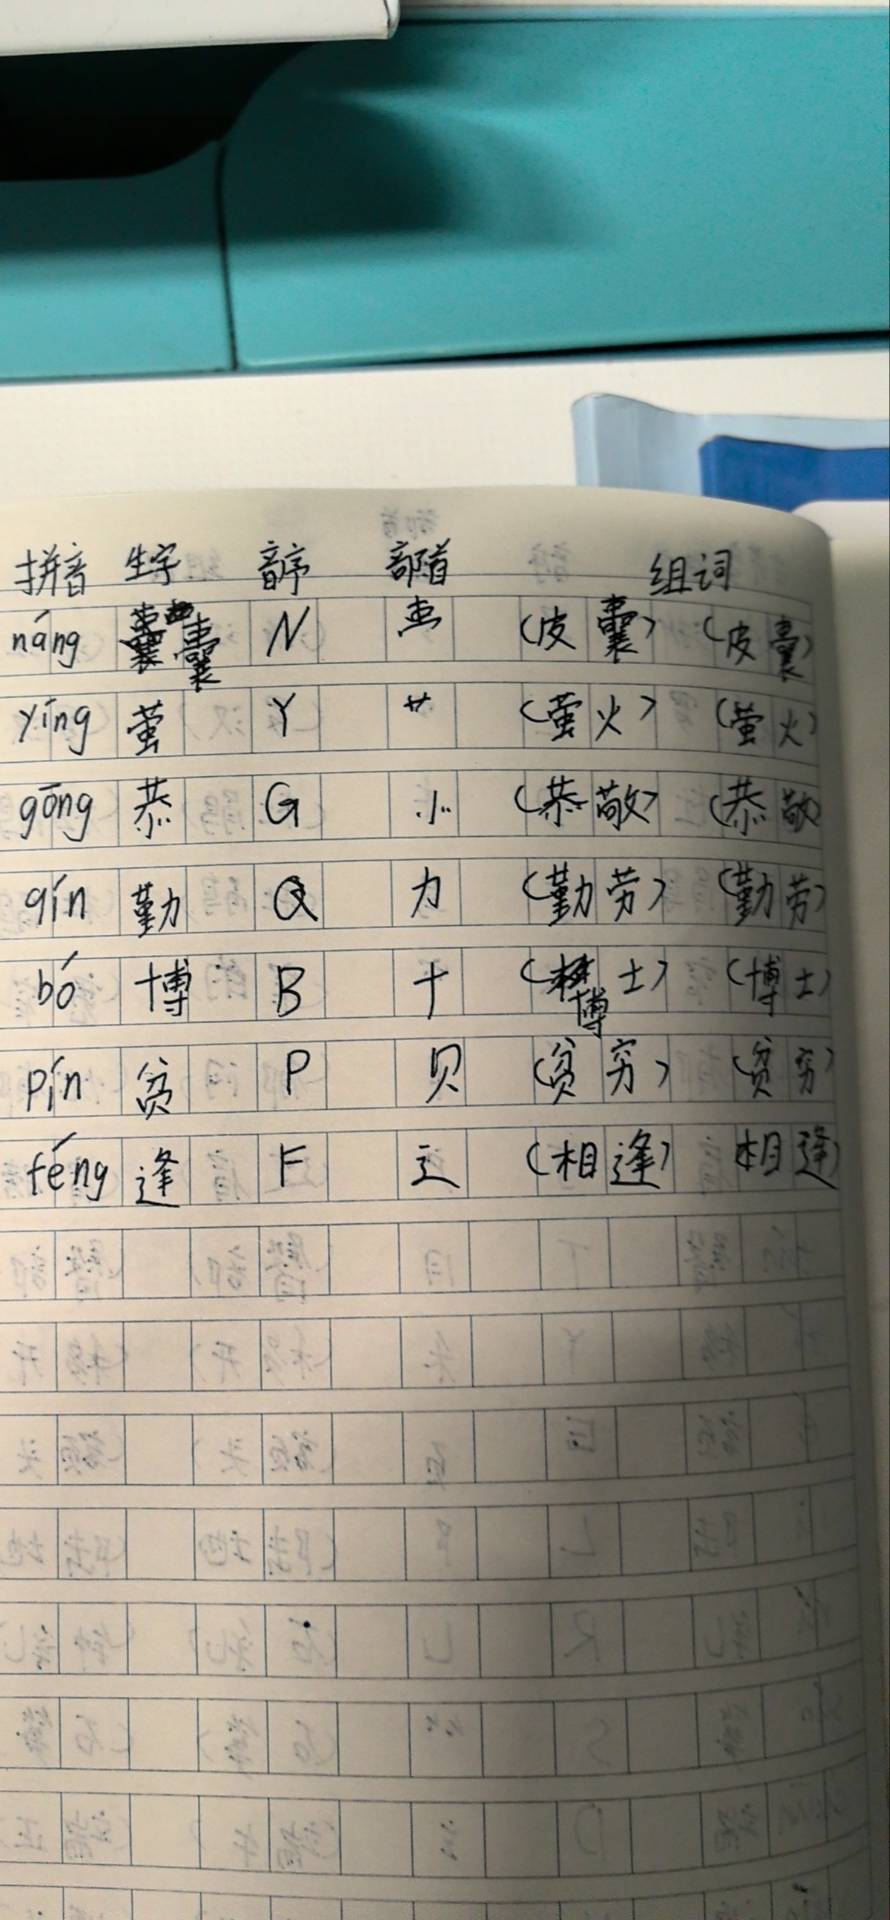 拼音 生字 音序 部首 组词
náng 囊 N (皮囊) (皮囊)
yíng 萤 Y 艹 (萤火) (萤火)
gōng 恭 G 㣺 (恭敬) (恭敬)
qín 勤 Q 力 (勤劳) (勤劳)
bó 博 B 十 (博士) (博士)
pín 贫 P 贝 (贫穷) (贫穷)
féng 逢 F 辶 (相逢) 相逢)